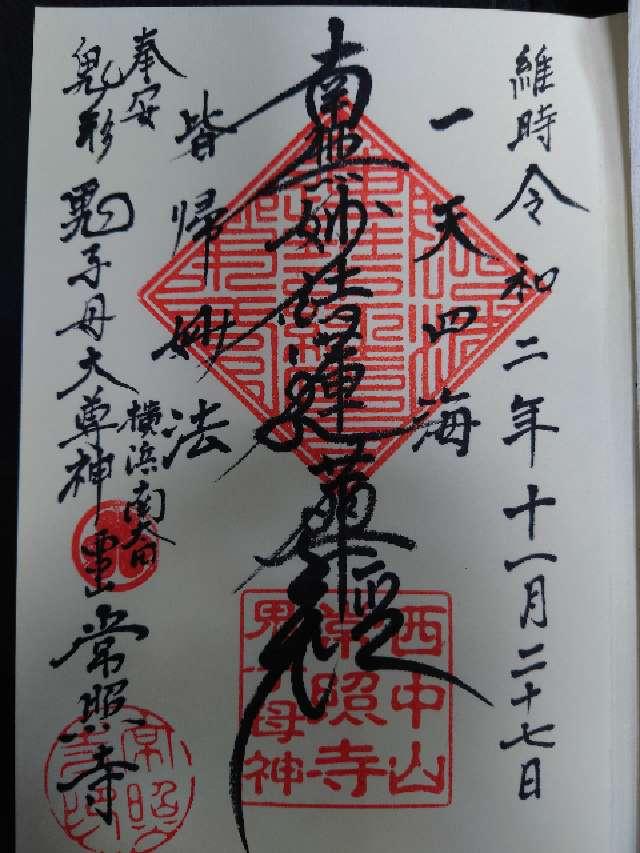 維時令和二年十一月二十七日
一天四海
南無妙法蓮華経
皆帰妙法
奉安
鬼形 鬼子母大尊神
横浜南太田
常照寺
西中山
常照寺
鬼子母神